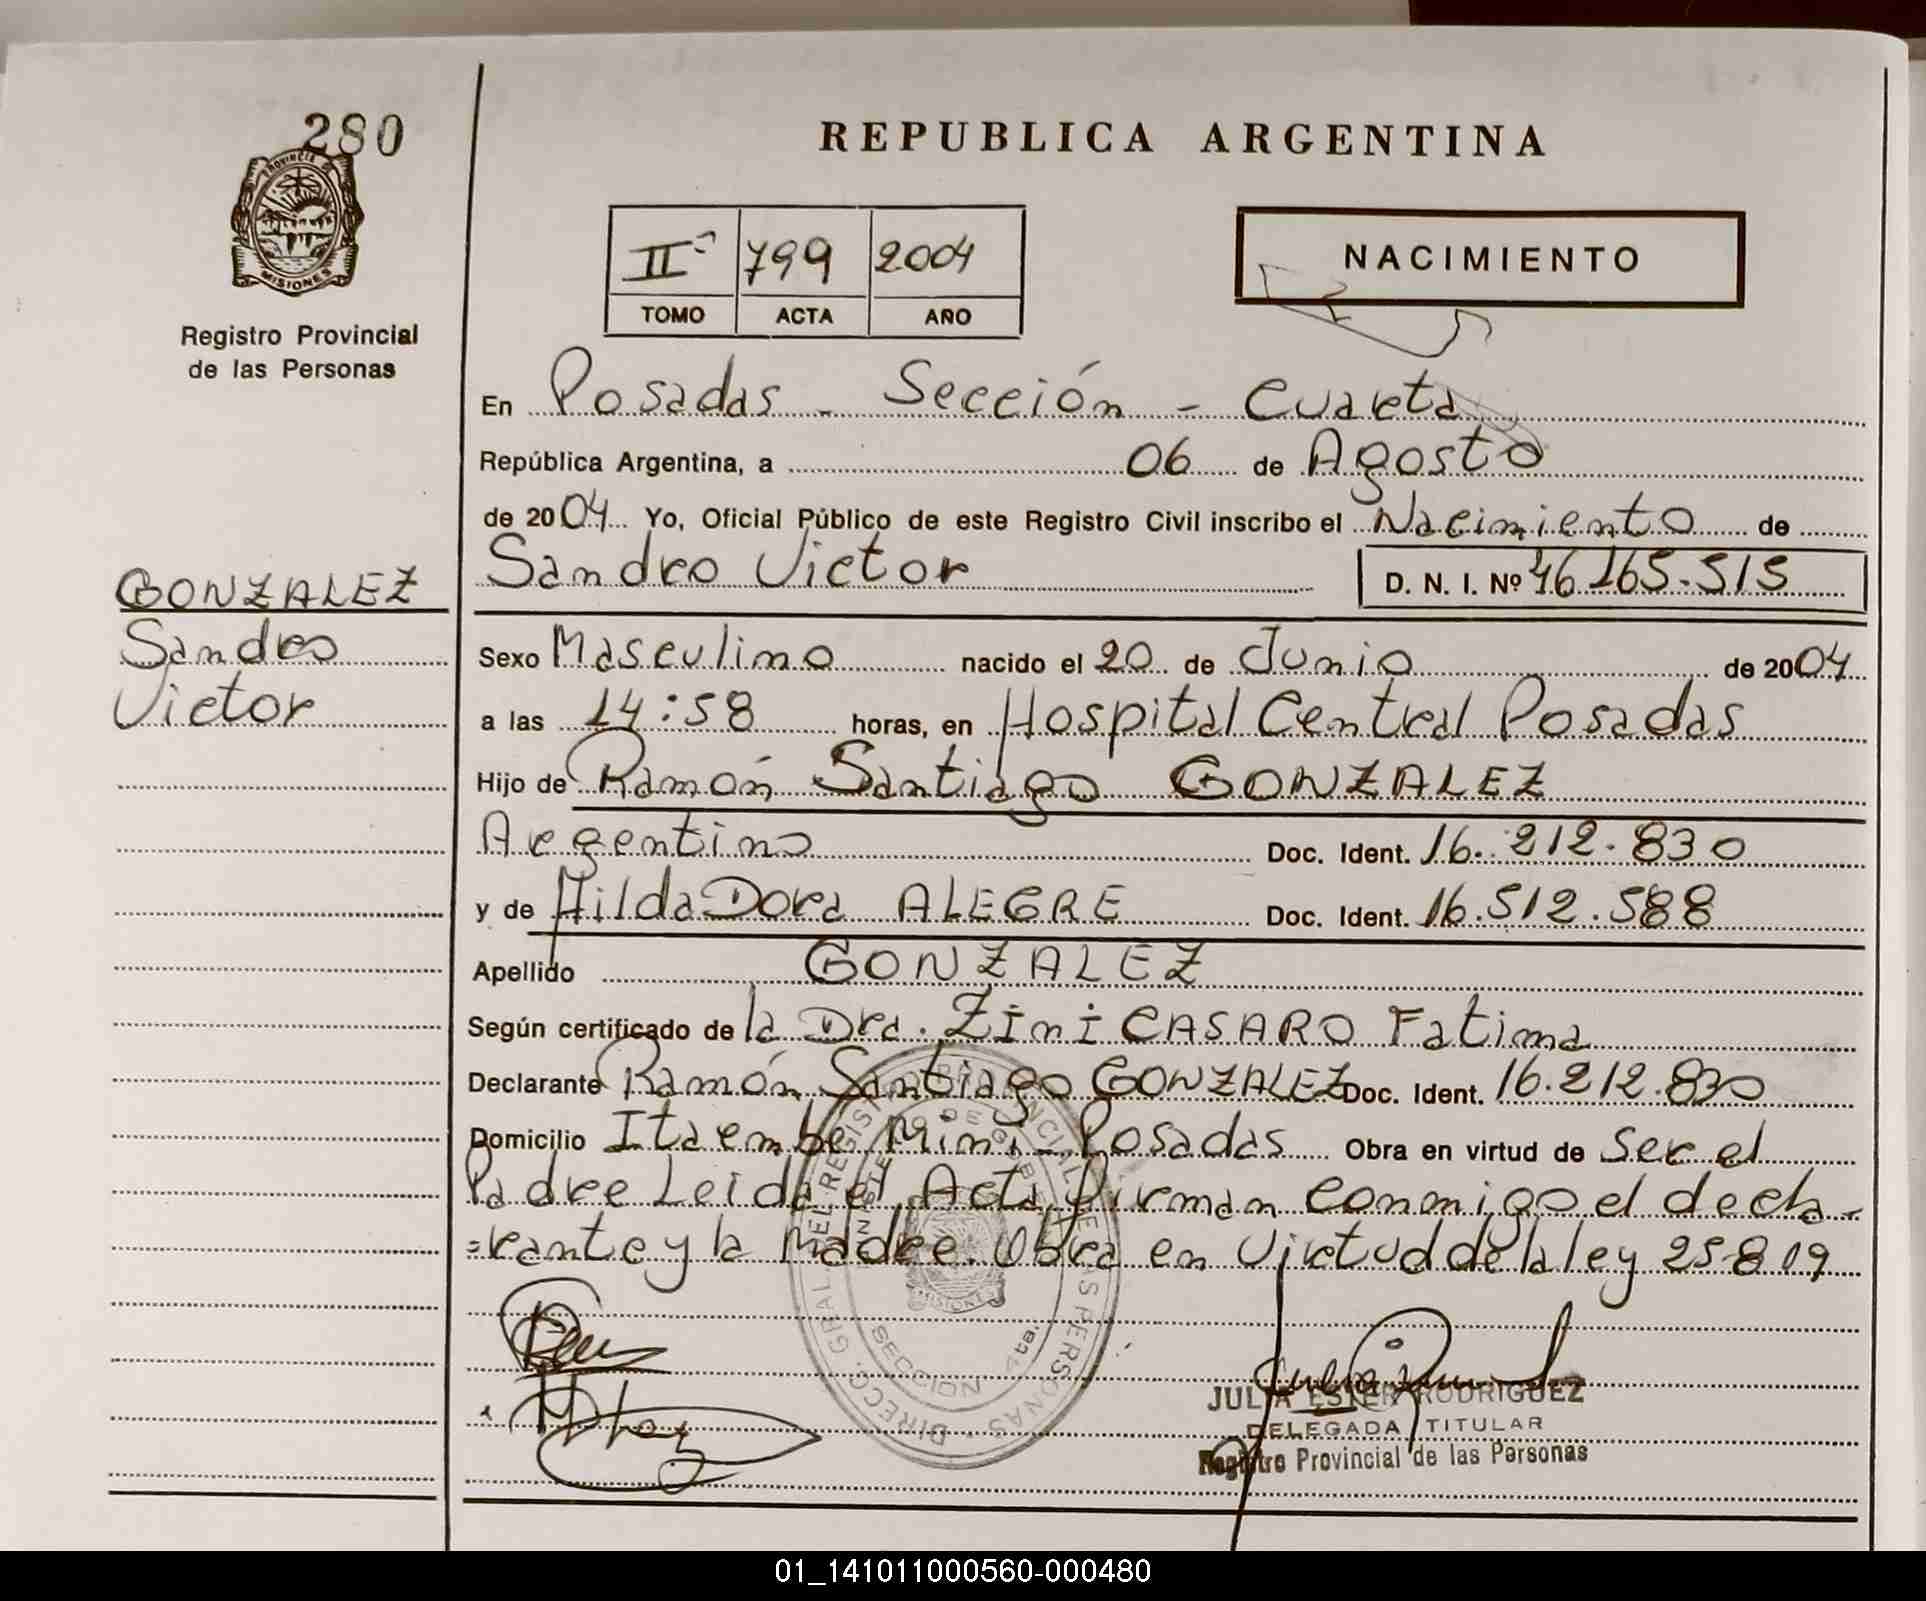 280
PROVINCIA DE
MISIONES
Registro Provincial
de las Personas
GONZALEZ
Sandro
Victor
REPUBLICA ARGENTINA
II 799 2004
TOMO ACTA AÑO
NACIMIENTO
En Posadas - Sección - Cuarta
República Argentina, a 06 de Agosto
de 2004 Yo, Oficial Público de este Registro Civil inscribo el Nacimiento de
Sandro Victor D. N. I. Nº 46.165.515
Sexo Masculino nacido el 20 de Junio de 2004
a las 14:58 horas, en Hospital Central Posadas
Hijo de Ramón Santiago GONZALEZ
Argentino Doc. Ident. 16.212.830
y de Hilda Dora ALEGRE Doc. Ident. 16.512.588
Apellido GONZALEZ
Según certificado de la Dra. Zini CASARO Fatima
Declarante Ramón Santiago GONZALEZ Doc. Ident. 16.212.830
Domicilio Itaembe Mini - Posadas Obra en virtud de ser el
Padre Leida el Acta, firman conmigo el decla-
=rante y la Madre. Obra en Virtud de la ley 25.819
DIRECC. GRAL. DEL REGISTRO PROVINCIAL DE LAS PERSONAS
MINISTERIO DE GOBIERNO
MISIONES
SECCION 4ta.
JULIA ESTER RODRIGUEZ
DELEGADA TITULAR
Registro Provincial de las Personas
01_141011000560-000480